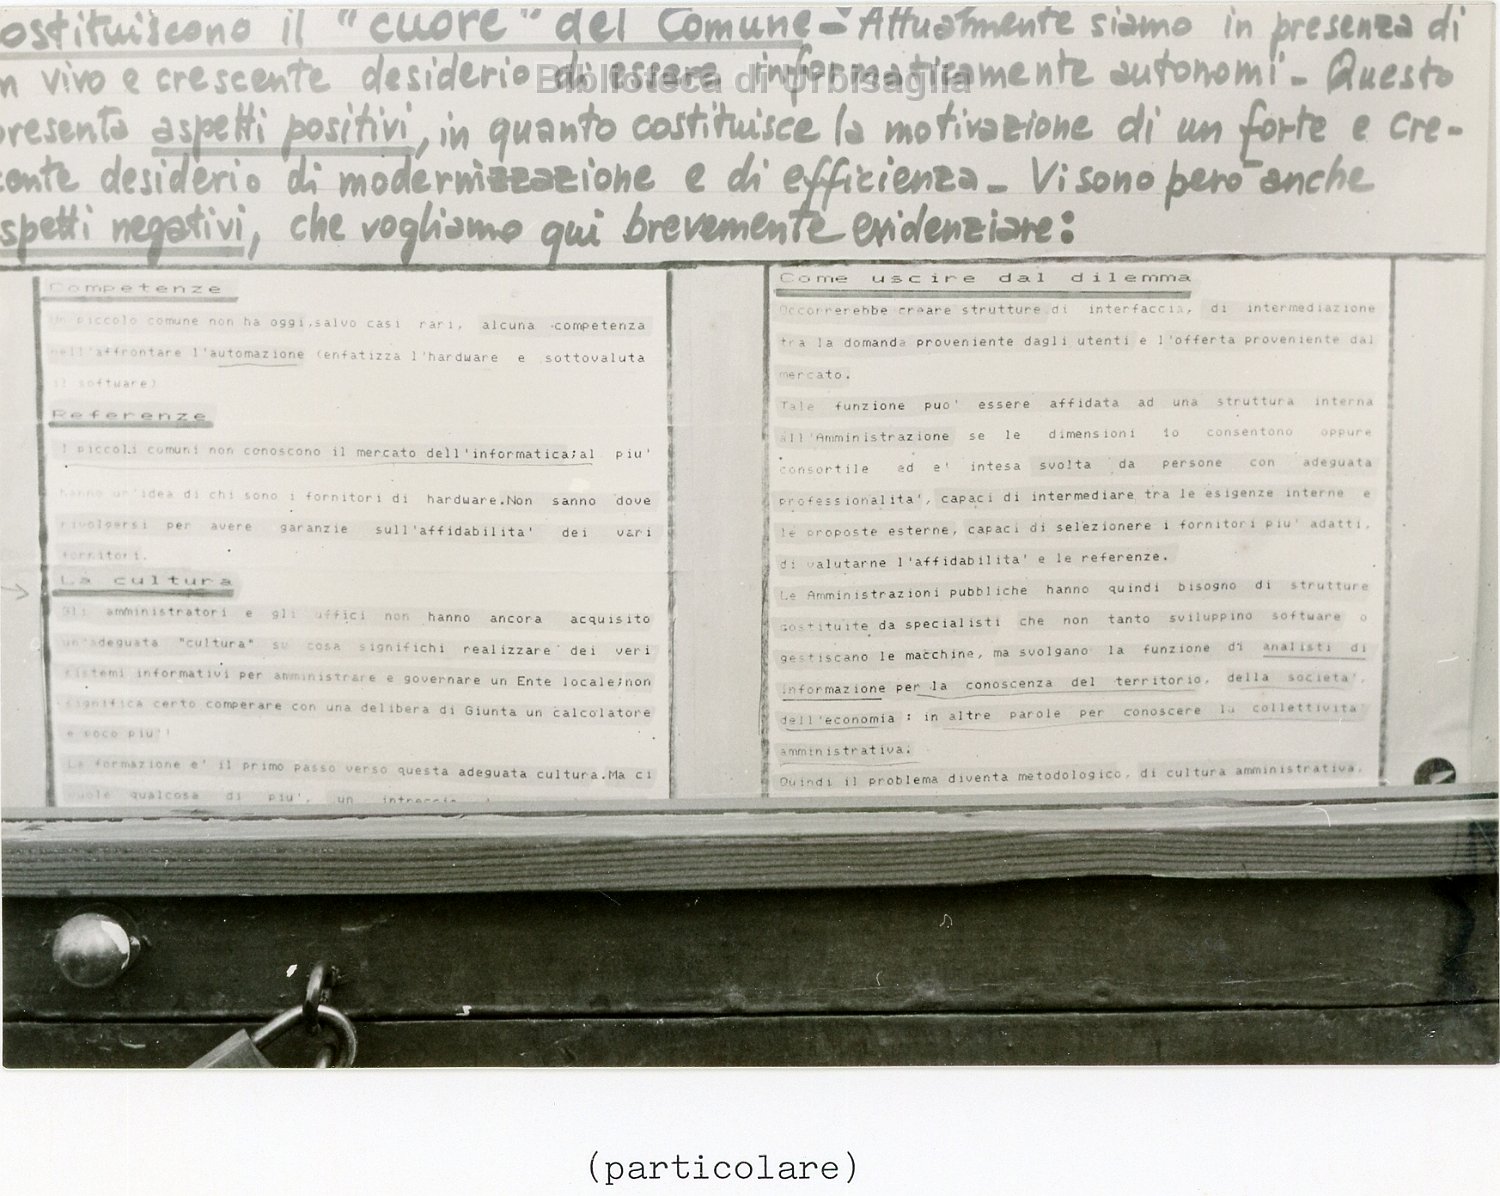 ostituiscono il "cuore" del Comune - Attualmente siamo in presenza di
n vivo e crescente desiderio di essere informaticamente autonomi - Questo
Biblioteca di Urbisaglia
presenta aspetti positivi, in quanto costituisce la motivazione di un forte e cre-
cente desiderio di modernizzazione e di efficienza - Vi sono però anche
spetti negativi, che vogliamo qui brevemente evidenziare:
Competenze
Un piccolo comune non ha oggi,salvo casi rari, alcuna competenza
nell'affrontare l'automazione (enfatizza l'hardware e sottovaluta
il software)
Referenze
I piccoli comuni non conoscono il mercato dell'informatica;al piu'
hanno un'idea di chi sono i fornitori di hardware.Non sanno dove
rivolgersi per avere garanzie sull'affidabilita' dei vari
fornitori.
La cultura
Gli amministratori e gli uffici non hanno ancora acquisito
un'adeguata "cultura" su cosa significhi realizzare dei veri
sistemi informativi per amministrare e governare un Ente locale;non
significa certo comperare con una delibera di Giunta un calcolatore
e poco piu'!
La formazione e' il primo passo verso questa adeguata cultura.Ma ci
vuole qualcosa di piu', un intreccio
Come uscire dal dilemma
Occorrerebbe creare strutture di interfaccia, di intermediazione
tra la domanda proveniente dagli utenti e l'offerta proveniente dal
mercato.
Tale funzione puo' essere affidata ad una struttura interna
all'Amministrazione se le dimensioni lo consentono oppure
consortile ed e' intesa svolta da persone con adeguata
professionalita', capaci di intermediare tra le esigenze interne e
le proposte esterne, capaci di selezionere i fornitori piu' adatti,
di valutarne l'affidabilita' e le referenze.
Le Amministrazioni pubbliche hanno quindi bisogno di strutture
costituite da specialisti che non tanto sviluppino software o
gestiscano le macchine, ma svolgano la funzione di analisti di
informazione per la conoscenza del territorio, della societa',
dell'economia : in altre parole per conoscere la collettivita
amministrativa.
Quindi il problema diventa metodologico, di cultura amministrativa.
(particolare)